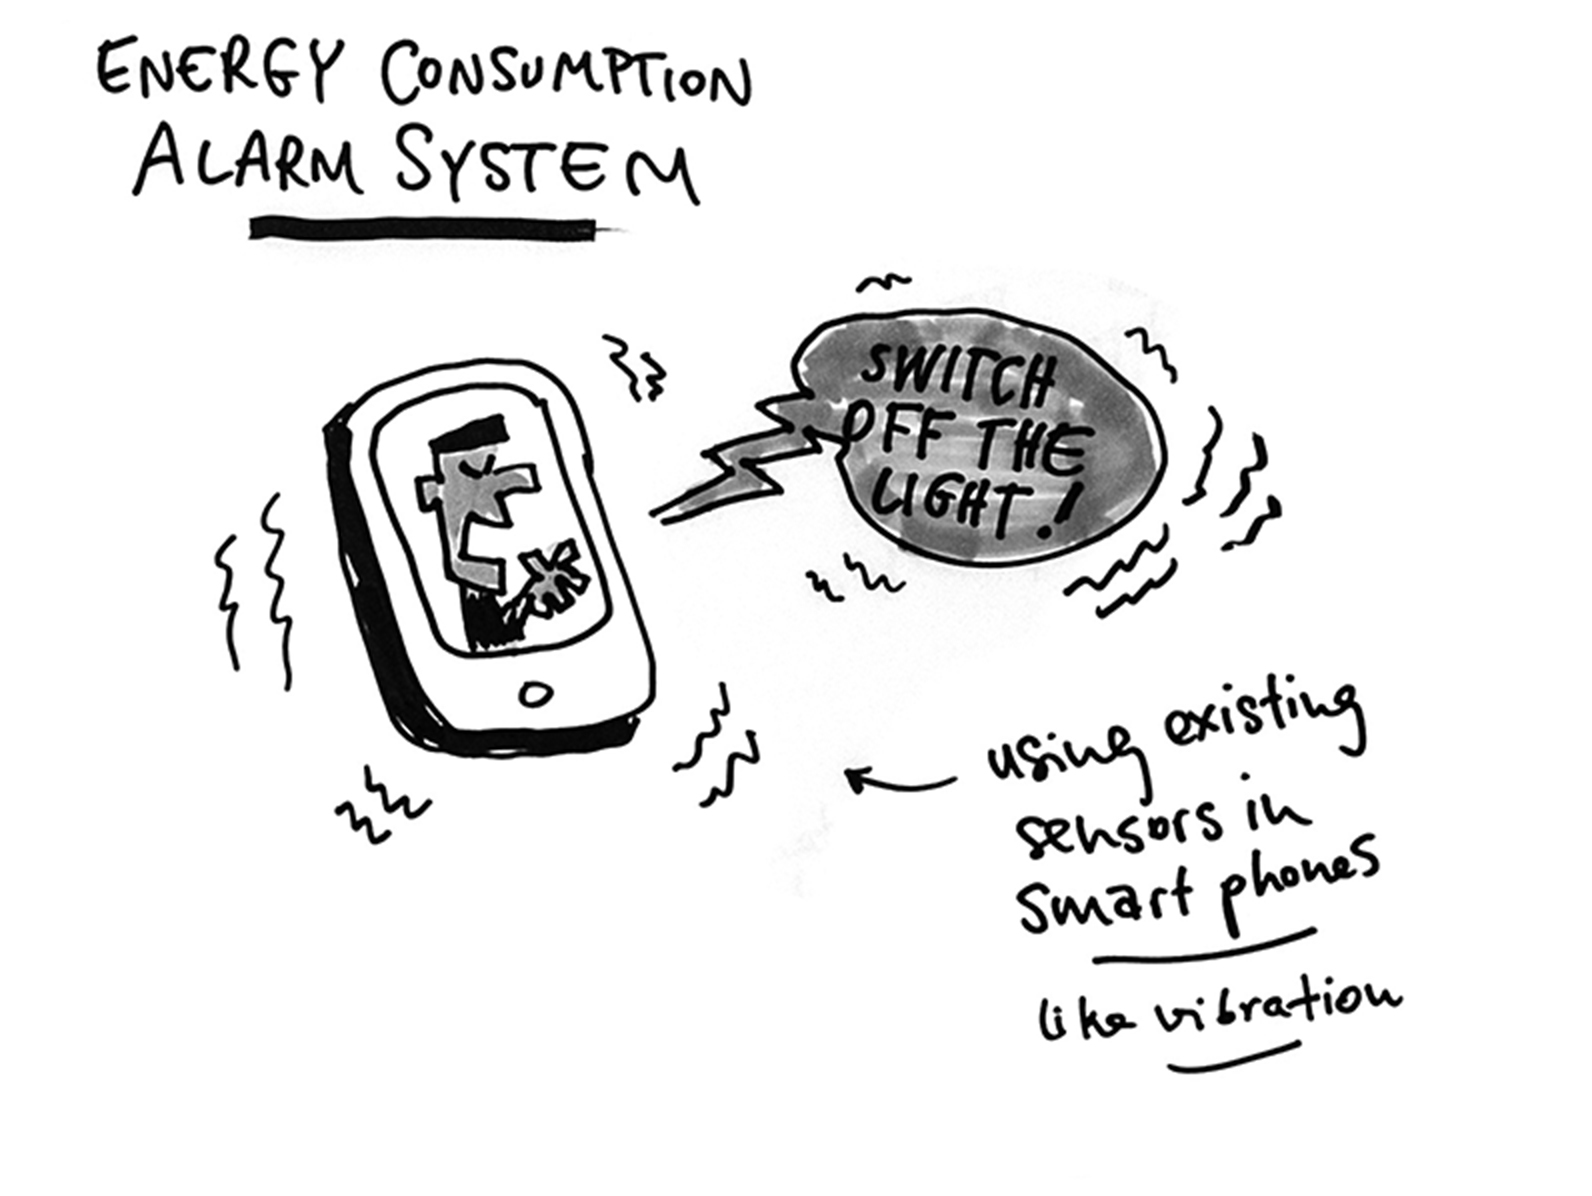 ENERGY CONSUMPTION
ALARM SYSTEM
SWITCH
OFF THE
LIGHT!
using existing
sensors in
smart phones
like vibration